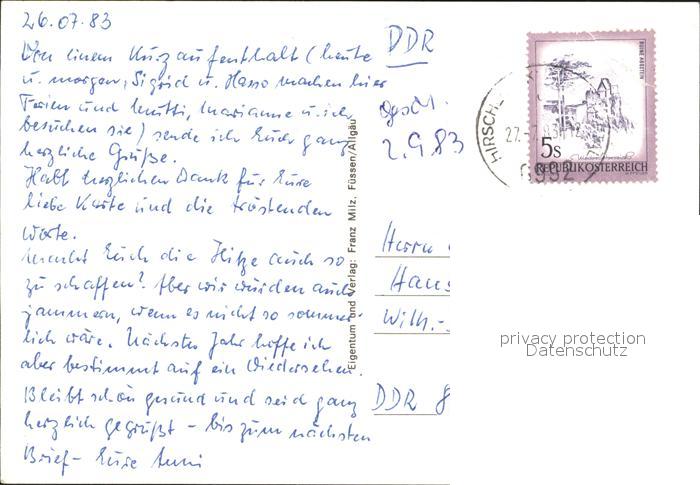 26.07.83
Von einem Kurzaufenthalt (heute
u. morgen, Sigrid u. Hasso machen hier
Ferien und Mutti, Marianne u. ich
besuchen sie) sende ich Euch ganz
herzliche Grüße.
Habt herzlichen Dank für Eure
liebe Karte und die tröstenden
Worte.
Macht Euch die Hitze auch so
zu schaffen? Aber wir würden auch
jammern, wenn es nicht so sommer-
lich wäre. Nächstes Jahr hoffe ich
aber bestimmt auf ein Wiedersehen.
Bleibt schön gesund und seid ganz
herzlich gegrüßt – bis zum nächsten
Brief – Eure Anni
Eigentum und Verlag: Franz Milz, Füssen/Allgäu
DDR
2.9.83
Herrn
Hans
Wilh.-
DDR 8
RUINE AGGSTEIN
5s
REPUBLIK ÖSTERREICH
HIRSCH
27.-7.83
6992
privacy protection
Datenschutz